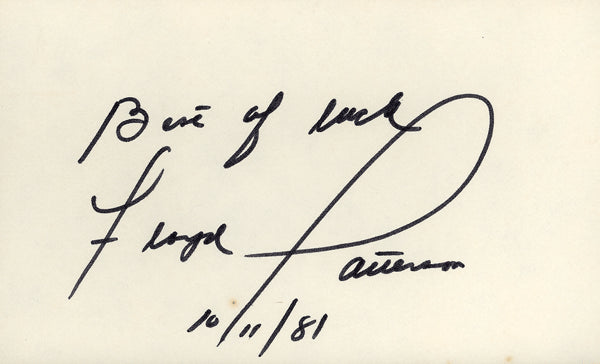 Best of luck
Floyd Patterson
10/11/81